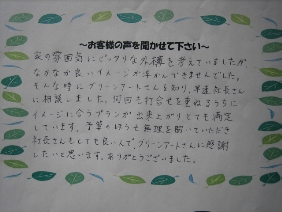 ～お客様の声を聞かせて下さい～
家の雰囲気にピッタリな外構を考えていましたが
なかなか良いイメージが浮かんできませんでした。
そんな時にグリーンアートさんを知り、早速社長さん
に相談しました。何回も打合せを重ねるうちに
イメージに合うプランが出来上がりとても満足
しています。予算のほうも無理を聞いていただき
社長さんもとても良い人で、グリーンアートさんに感謝
したいと思います。ありがとうございました。